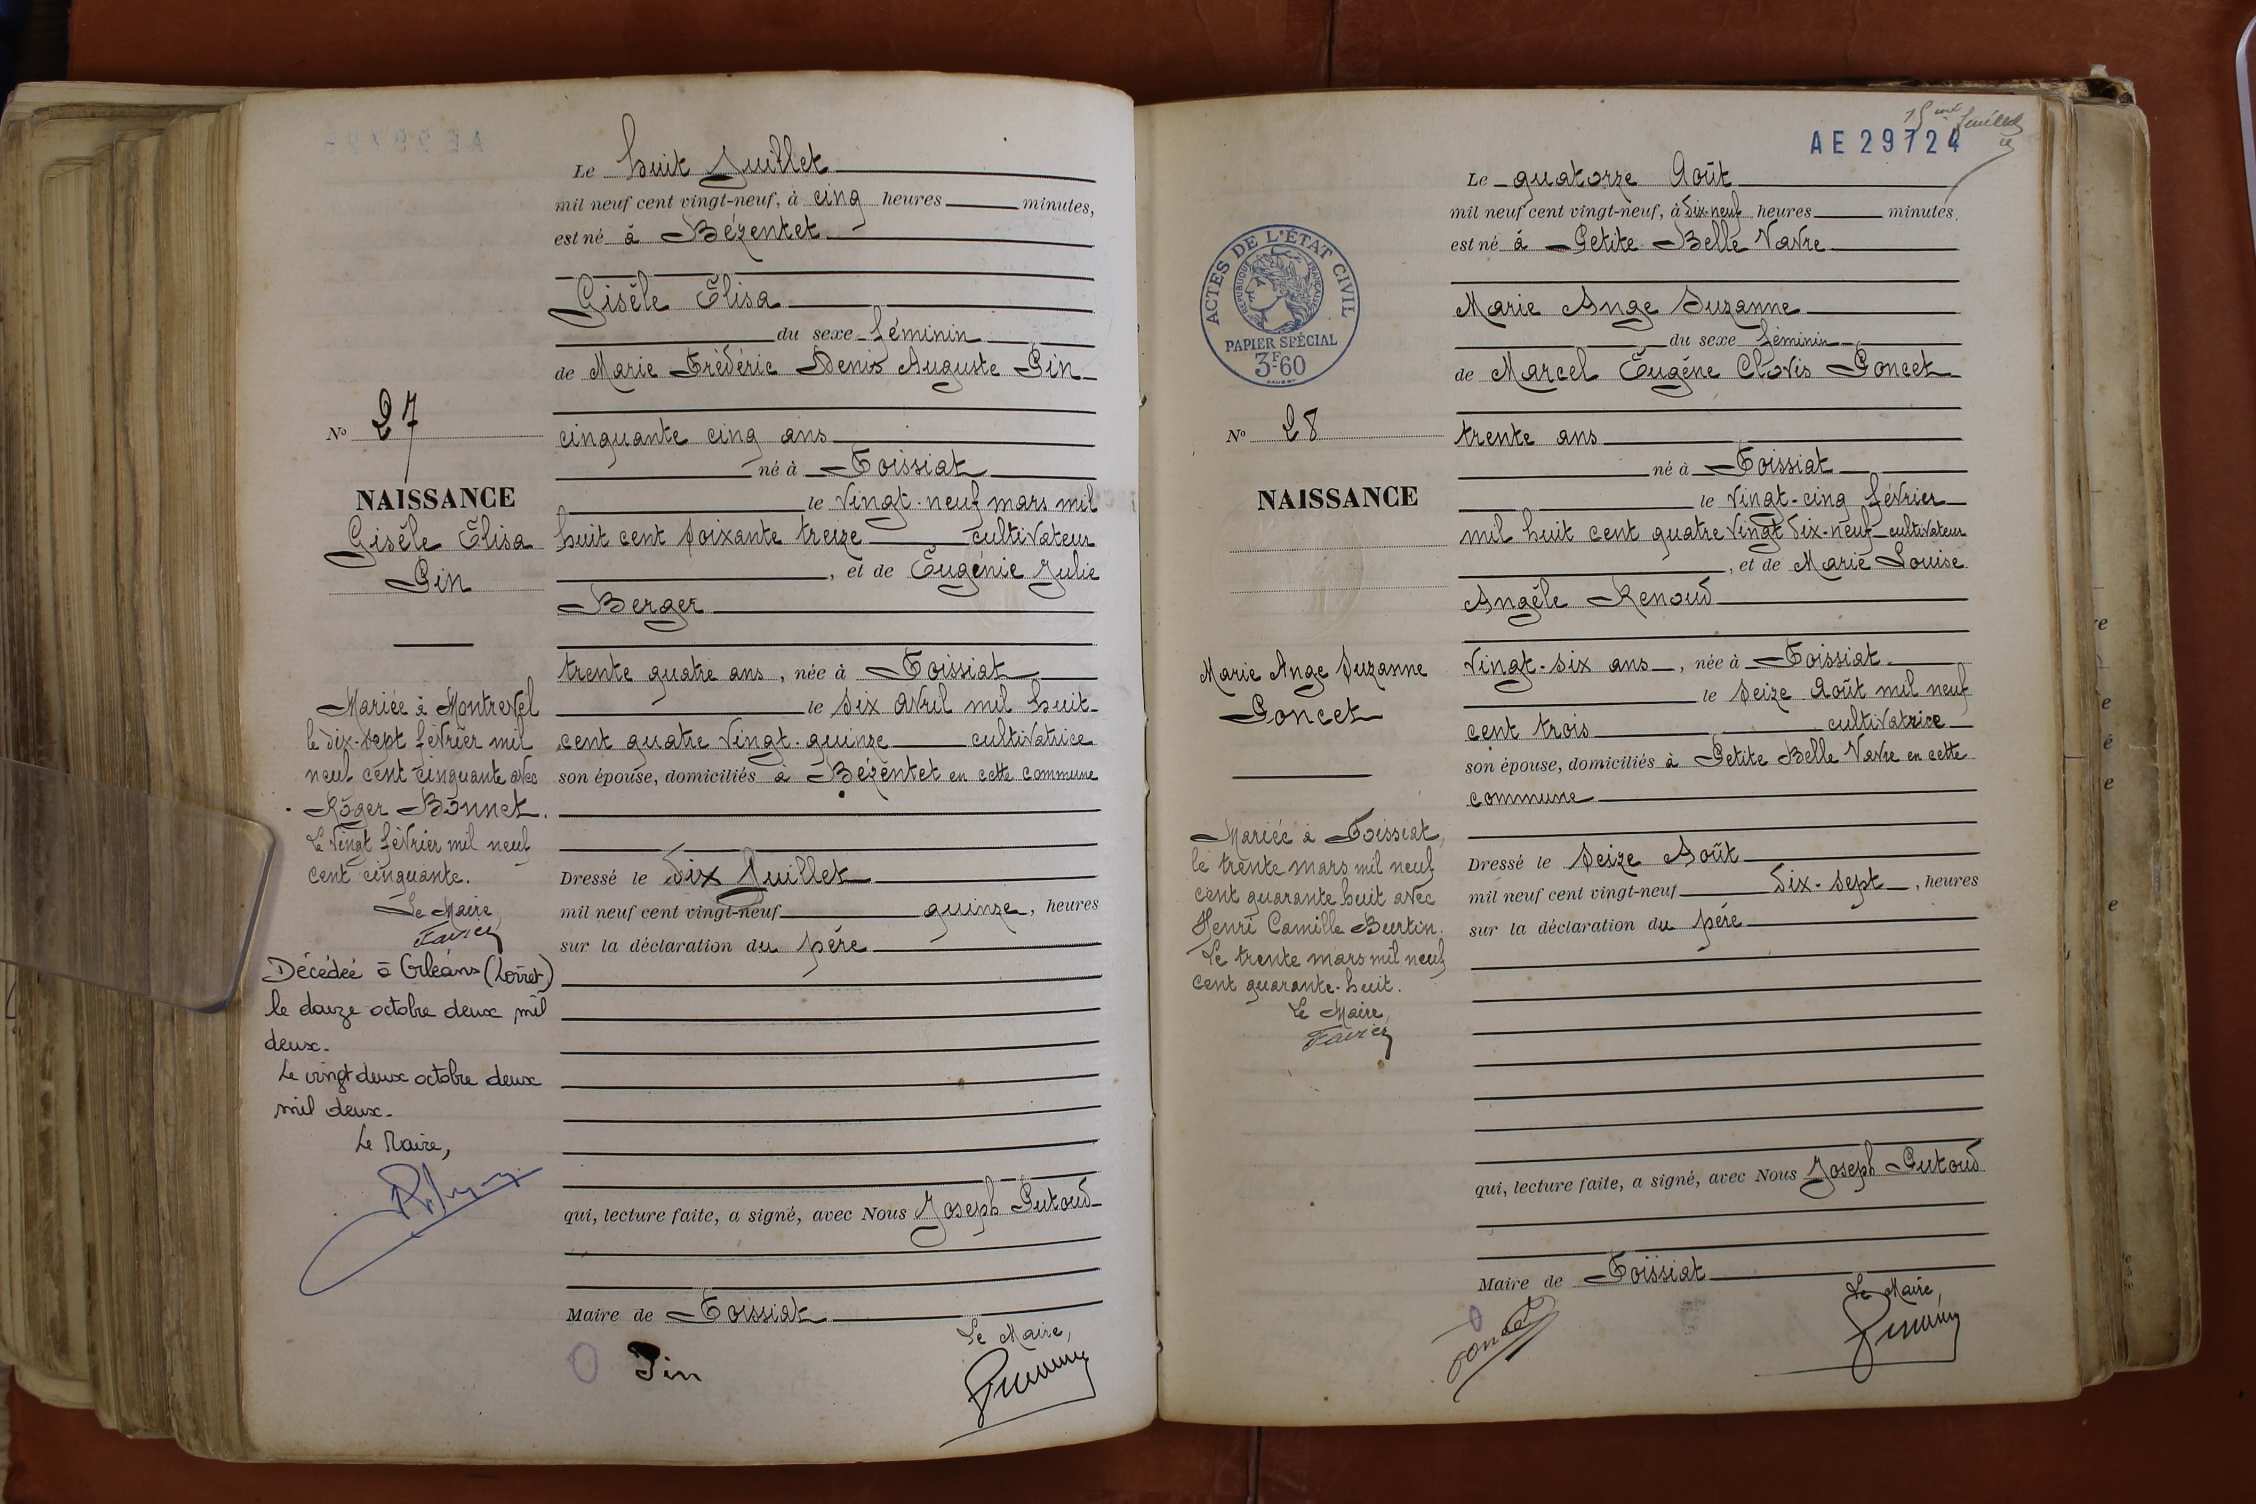 Le huit Juillet
mil neuf cent vingt-neuf, à cinq heures minutes,
est né à Bézentet
Gisèle Elisa
du sexe féminin
de Marie Frédéric Denis Auguste Pin
cinquante cinq ans
né à Foissiat
le vingt-neuf mars mil
huit cent soixante treize cultivateur
, et de Eugénie Julie
Berger
trente quatre ans, née à Foissiat
le six avril mil huit
cent quatre vingt-quinze cultivatrice
son épouse, domiciliés à Bézentet en cette commune
Dressé le dix Juillet
mil neuf cent vingt-neuf quinze, heures
sur la déclaration du père
qui, lecture faite, a signé, avec Nous Joseph Putoud
Maire de Foissiat
Le Maire,
Pin
No 27
NAISSANCE
Gisèle Elisa
Pin
Mariée à Montrevel
le dix-sept février mil
neuf cent cinquante avec
Roger Bonnet.
Le vingt février mil neuf
cent cinquante.
Le Maire,
Favier
Décédée à Orléans (Loiret)
le douze octobre deux mil
deux.
Le vingt deux octobre deux
mil deux.
Le Maire,
AE 29724
Le quatorze Août
mil neuf cent vingt-neuf, à dix-neuf heures minutes,
est né à Petite Belle Vavre
Marie Ange Suzanne
du sexe féminin
de Marcel Eugène Clovis Poncet
trente ans
né à Foissiat
le vingt-cinq février
mil huit cent quatre vingt dix-neuf cultivateur
, et de Marie Louise
Angèle Renoud
vingt-six ans, née à Foissiat
le seize Août mil neuf
cent trois cultivatrice
son épouse, domiciliés à Petite Belle Vavre en cette
commune
Dressé le seize Août
mil neuf cent vingt-neuf dix-sept, heures
sur la déclaration du père
qui, lecture faite, a signé, avec Nous Joseph Putoud
Maire de Foissiat
Le Maire,
Poncet
ACTES DE L'ÉTAT CIVIL
RÉPUBLIQUE FRANÇAISE
PAPIER SPÉCIAL
3F60
No 28
NAISSANCE
Marie Ange Suzanne
Poncet
Mariée à Foissiat,
le trente mars mil neuf
cent quarante huit avec
Henri Camille Burtin.
Le trente mars mil neuf
cent quarante-huit.
Le Maire,
Favier